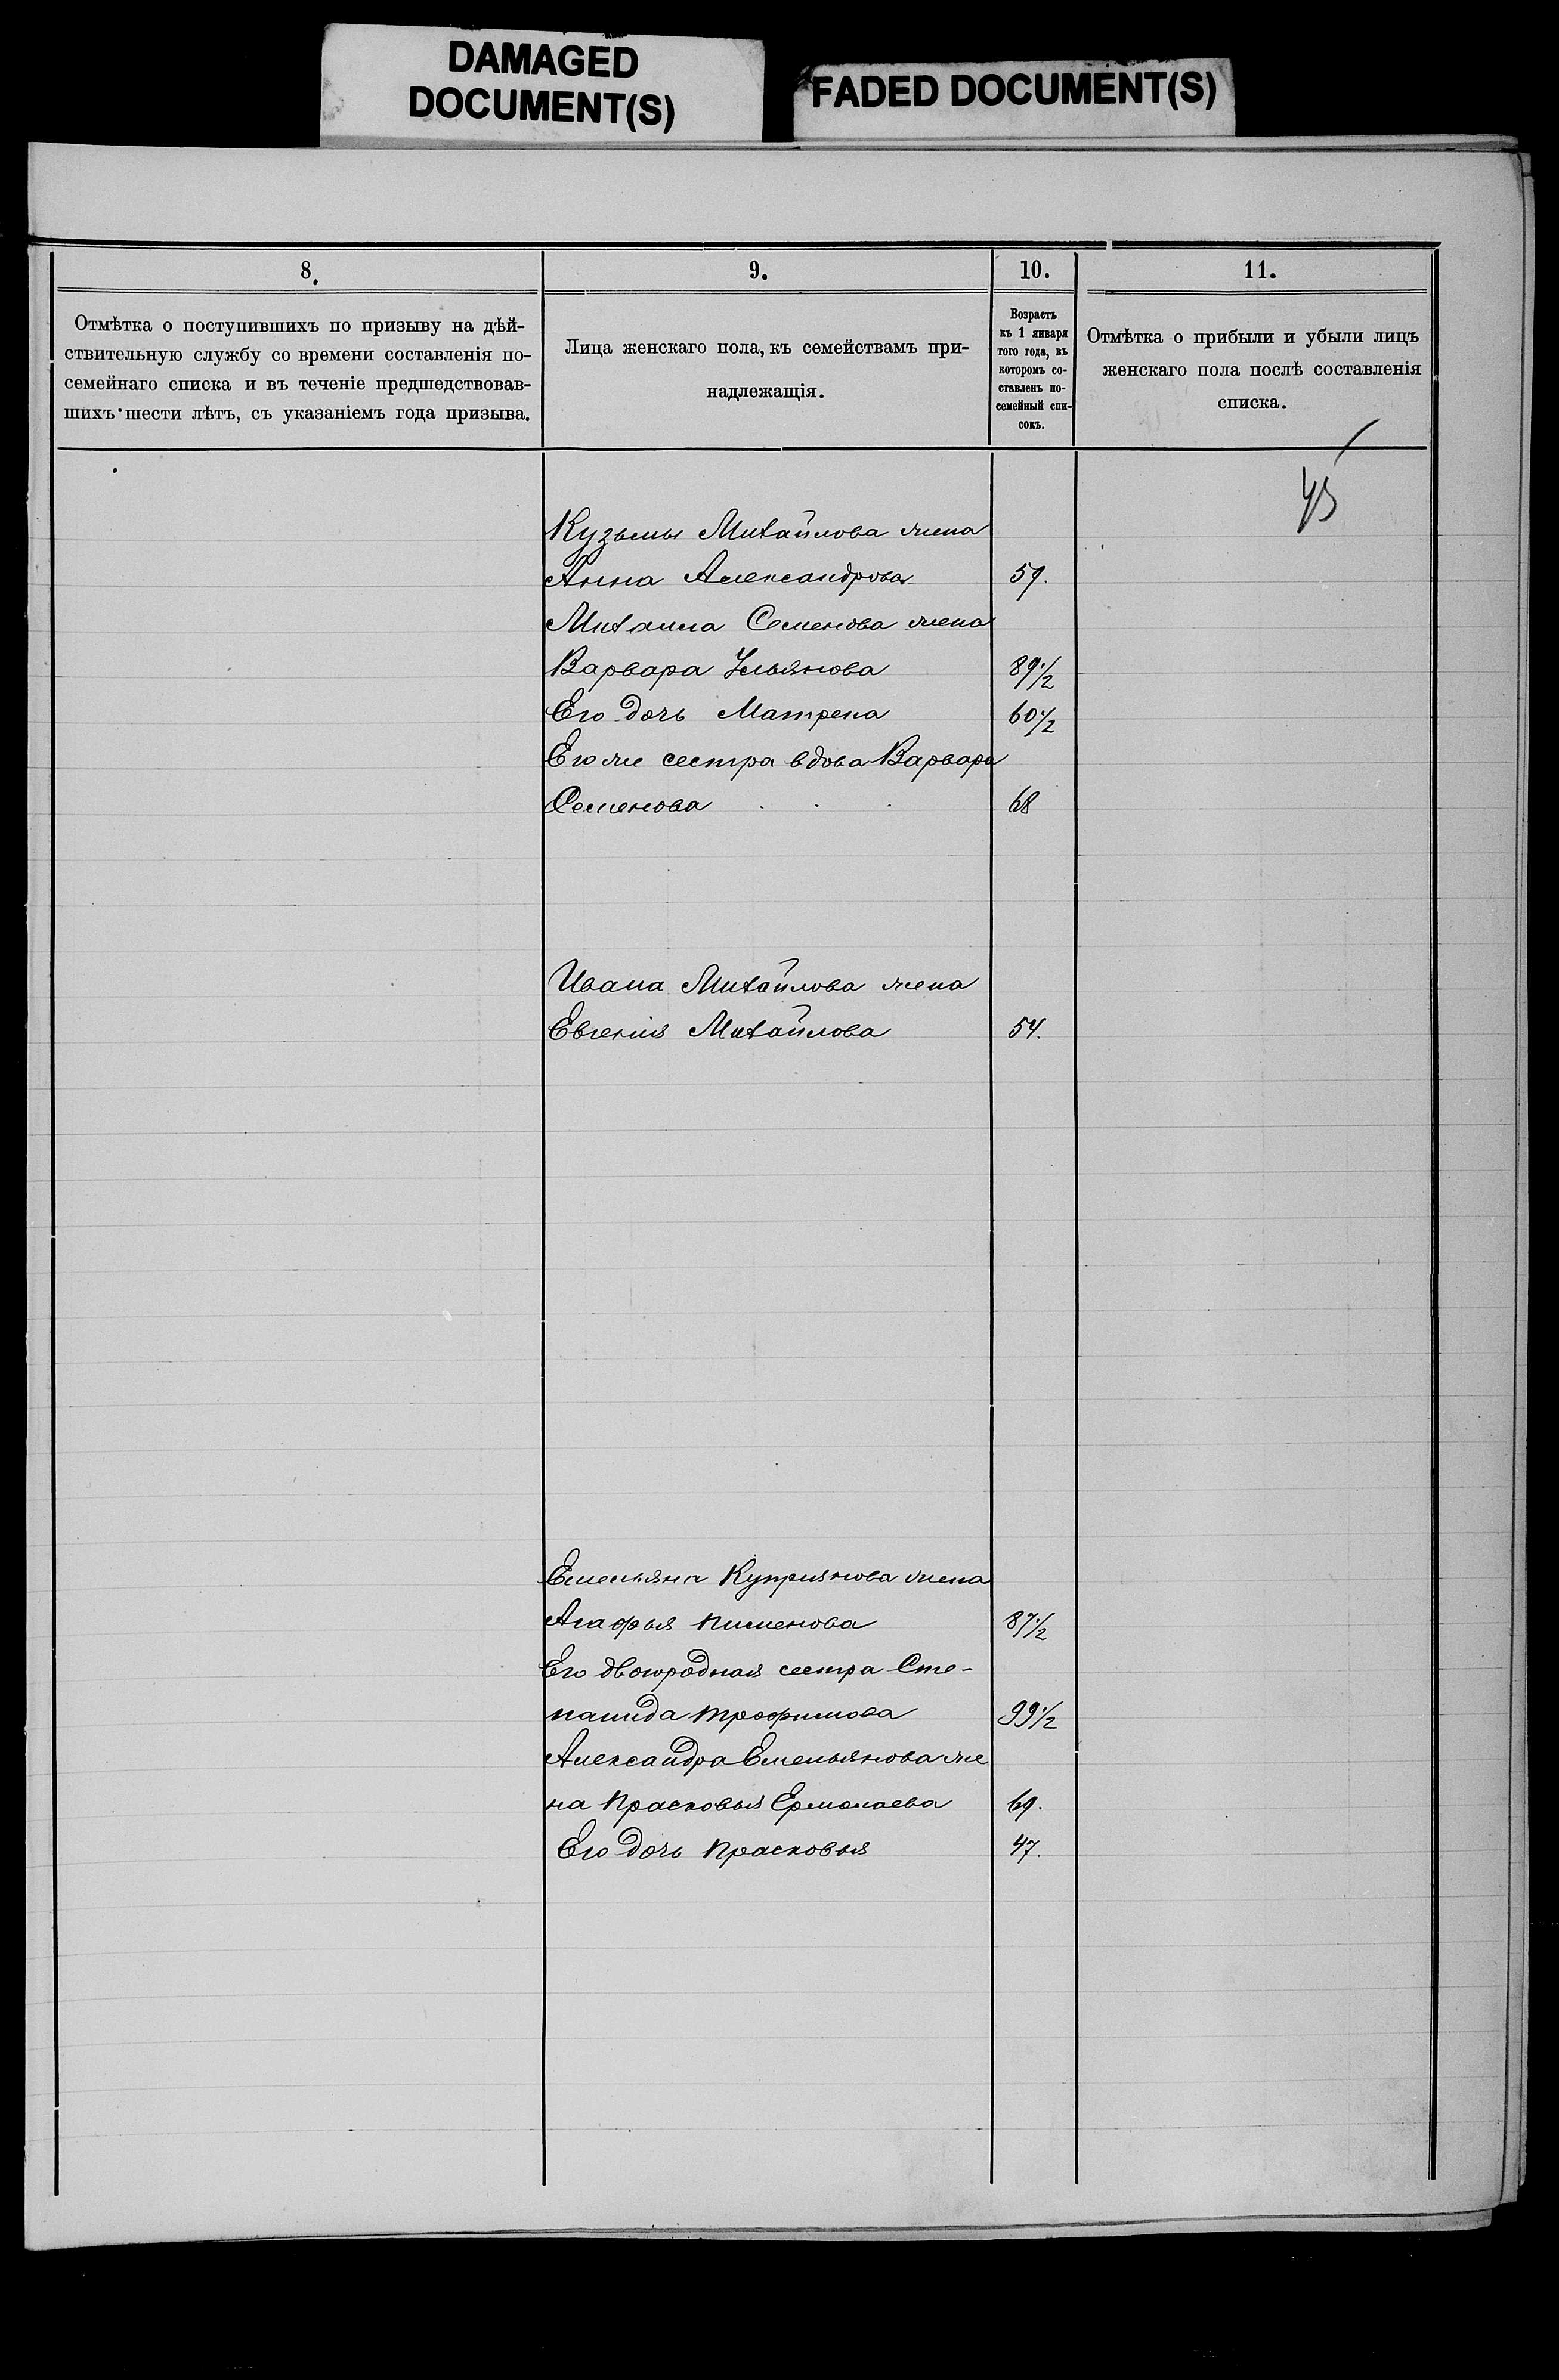 DAMAGED
DOCUMENT(S)
FADED DOCUMENT(S)
8.
9.
10.
11.
Отмѣтка о поступившихъ по призыву на дѣй-
ствительную службу со времени составленія по-
семейнаго списка и въ теченіе предшедствовав-
шихъ шести лѣтъ, съ указаніемъ года призыва.
Лица женскаго пола, къ семействамъ при-
надлежащія.
Возрастъ
къ 1 января
того года, въ
которомъ со-
ставленъ по-
семейный спи-
сокъ.
Отмѣтка о прибыли и убыли лицъ
женскаго пола послѣ составленія
списка.
Кузьмы Михайлова жена
Анна Александрова 59.
Михаила Семенова жена
Варвара Ульянова 89 1/2
Его дочь Матрена 60 1/2
Его же сестра вдова Варвара
Семенова 68
Ивана Михайлова жена
Евгенія Михайлова 54.
Емельяна Куприянова жена
Агафья Пименова 87 1/2
Его двоюродная сестра Сте-
панида Трофимова 99 1/2
Александра Емельянова же
на Прасковья Ермолаева 69.
Его дочь Прасковья 47.